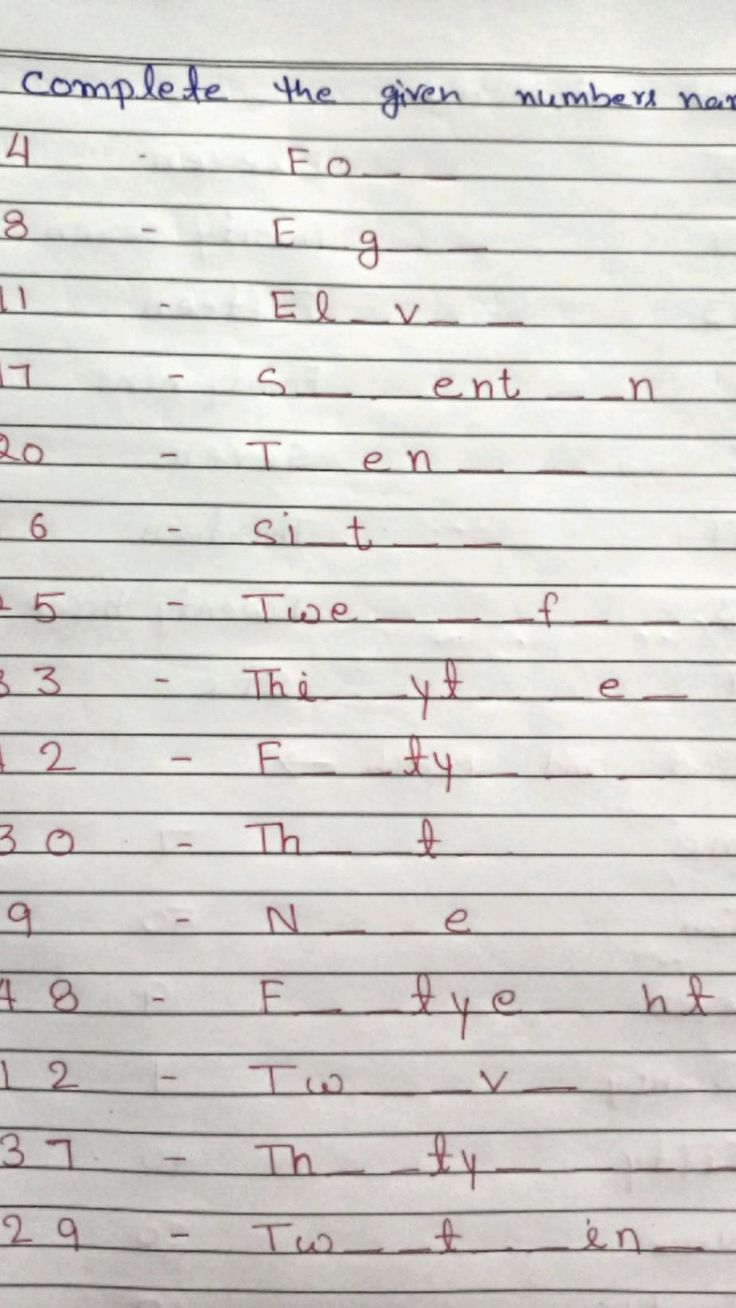 Complete the given numbers
4 - Fo_ _
8 - E_g_ _
11 - El_v_ _
17 - S_ _ent_ _n
20 - T_en_ _
6 - Si_t_ _ _
25 - Twe_ _ _f_ _ _
33 - Thi_yt_ _e_
42 - F_ _ty_ _ _
30 - Th_ _t_
9 - N_ _e
48 - F_ _tye_ _ht
12 - Tw_ _v_
37 - Th_ _ty_ _ _
29 - Tw_ _t_ _in_